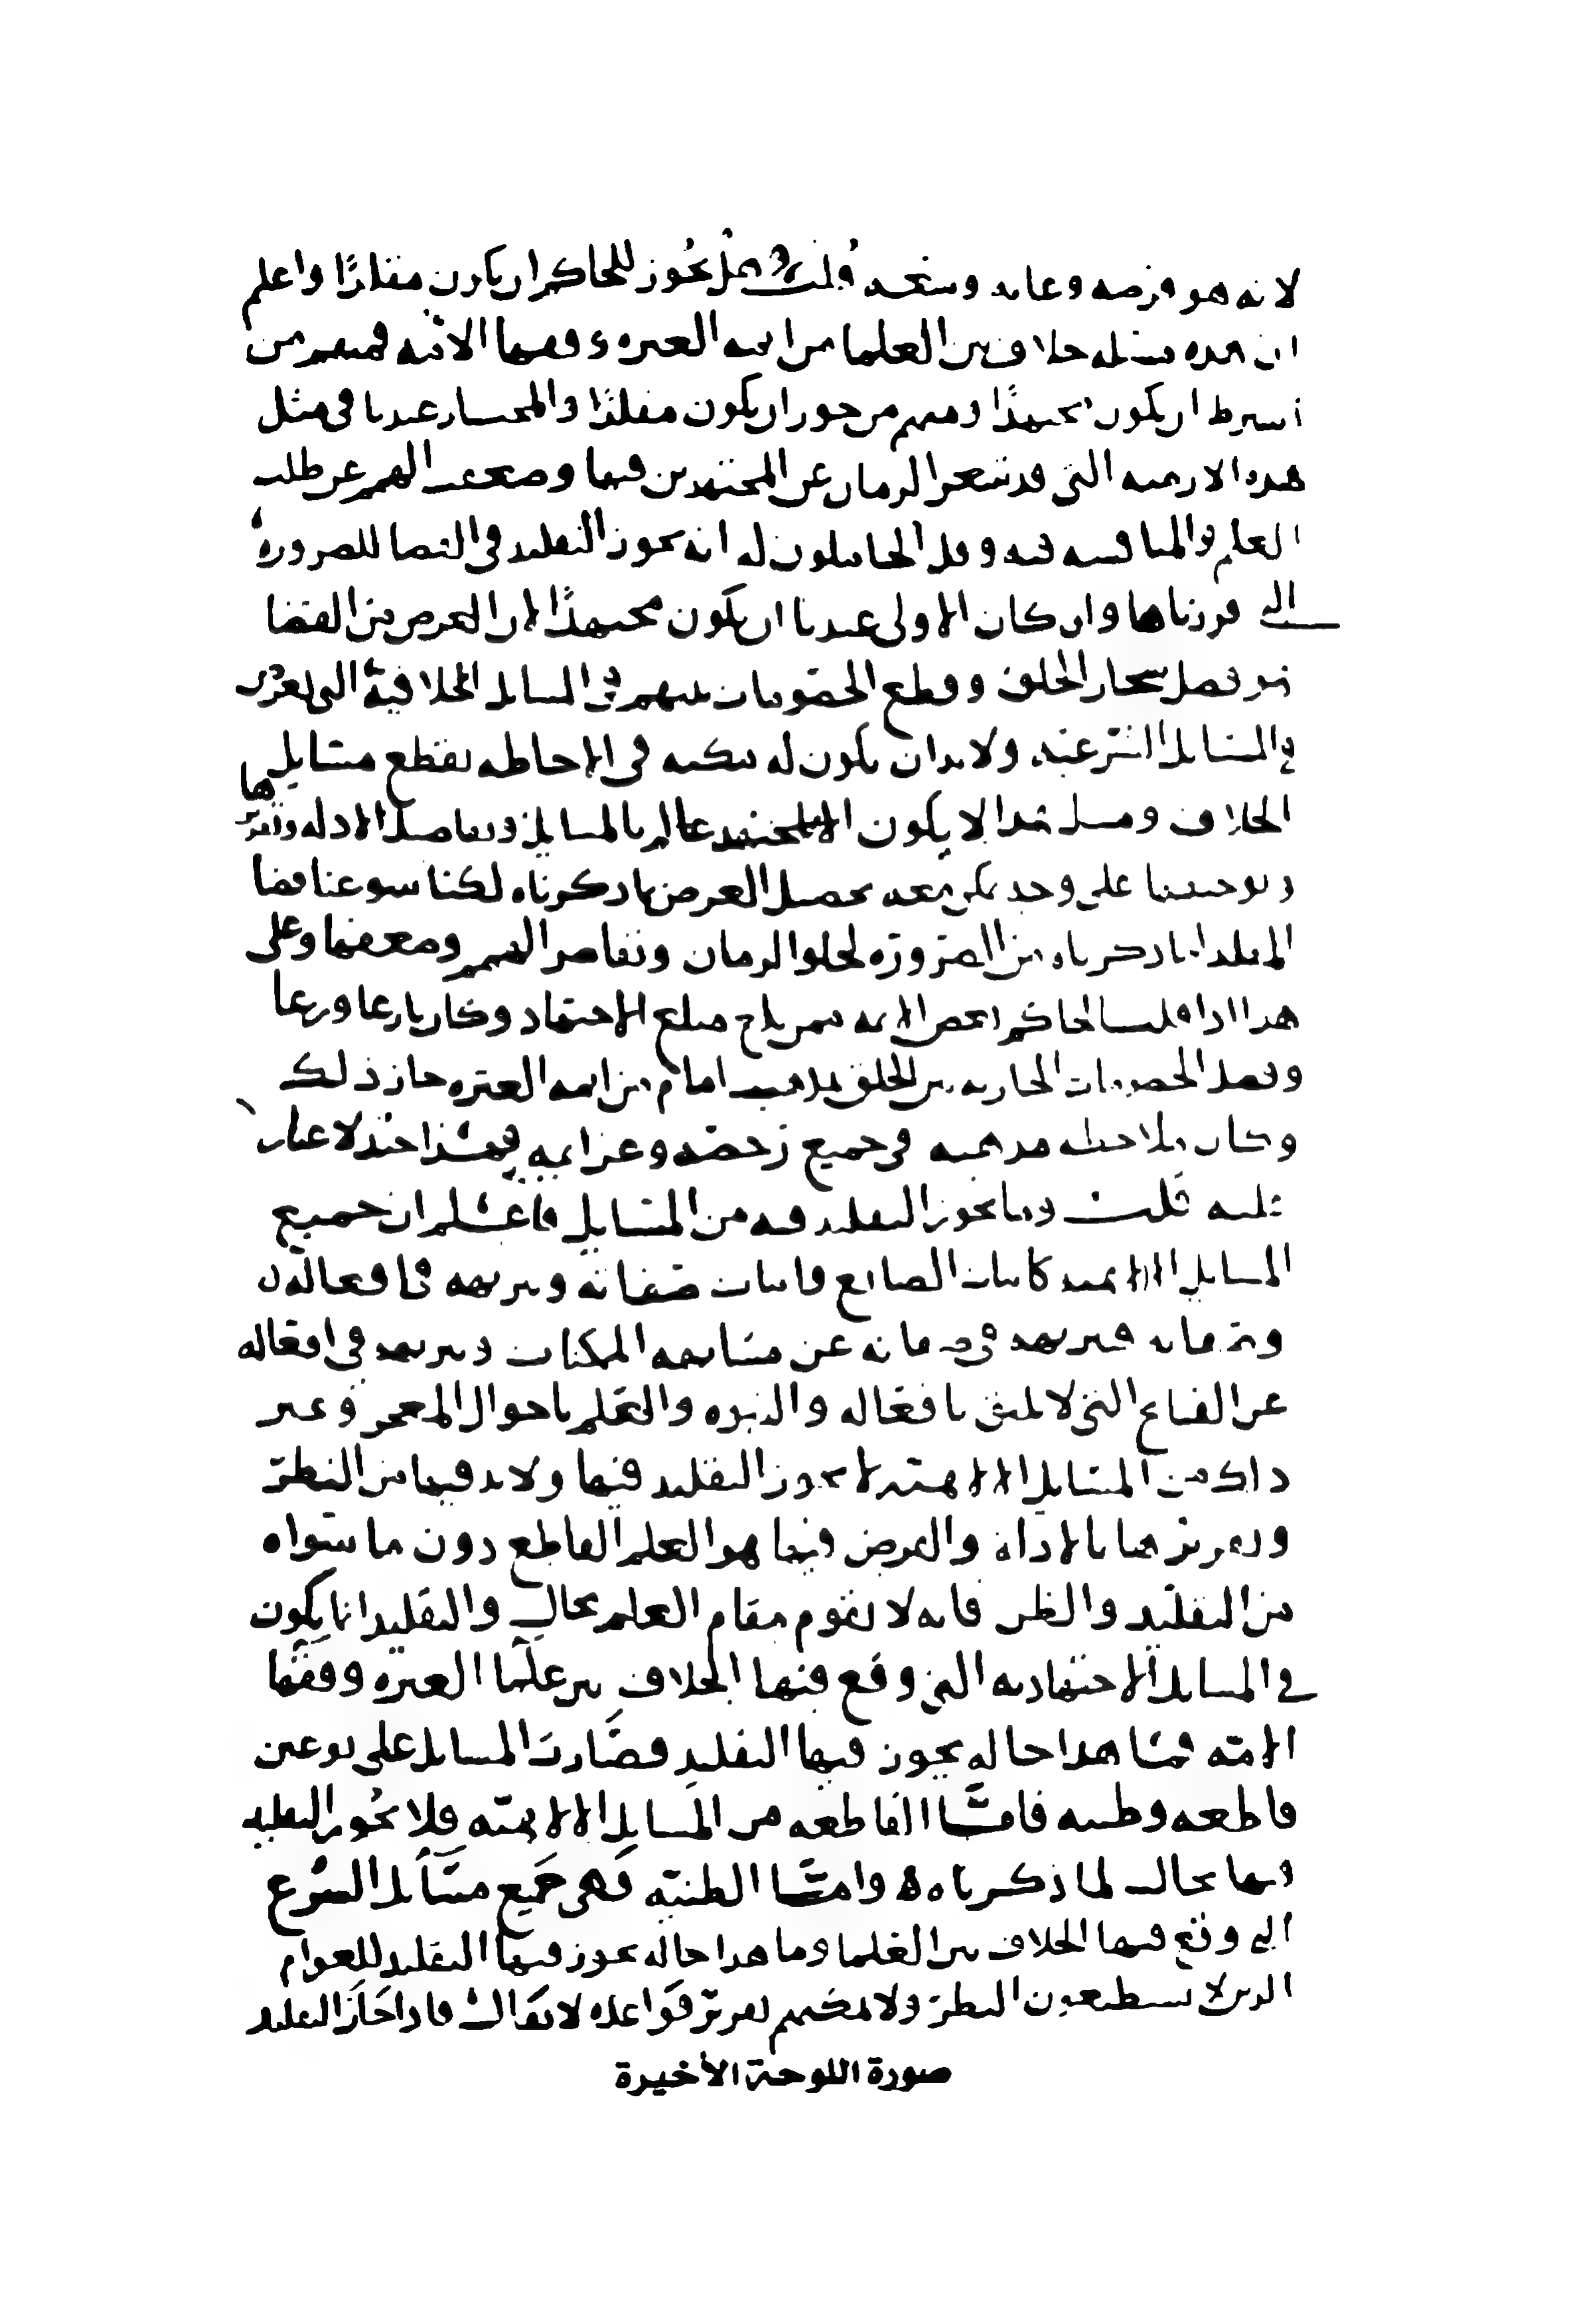 لانه هو فرضه وغايه وسعه قلت هل يجوز للحاكم ان يكون مقلدًا واعلم
ان هذه مسئله خلاف بين العلما من ايمه العتره وفقها الامه فمنهم من
اشرط ان يكون مجتهدًا ومنهم من جوز ان يكون مقلدًا والمختار عندنا في مثل
هذه الازمنه التي قد شغر الزمان عن المجتهدين فيها وضعفت الهمم عن طلب
العلم والمنافسه فيه وقل الحاملون له انه يجوز التقليد في القضا للضرورة
التي قررناها وان كان الاولى عندنا ان يكون مجتهدًا لان الغرض من القضا
هو فصل شجار الخلق وقطع الخصومات بينهم في المسايل الخلافية التي
في المسايل الشرعيه ولا بد ان يكون له مكنه في الاحاطه بقطع مسايل
الخلاف ومثل هذا لا يكون الا لمجتهد عالم بالمسايل وتفاصيل الادله وتقريرها
وتوجيهها على وجه يمكن معه تحصيل الغرض بما ذكرناه لكنا سوغنا قضا
المقلد لما ذكرناه من الضرورة لخلو الزمان وتقاصر الهمم وضعفها وعلى
هذا اذا الحاكم بعض الايمه ممن بلغ مبلغ الاجتهاد وكان بارعا ورعا
وفصل الخصومات الجاريه بين الخلق بمذهب امام من ايمه العتره جاز ذلك
وكان ملاحظا مذهبه في جميع رخصه وعزايمه فهذا جيد لا غبار
عليه قلت وما يجوز التقليد فيه من المسايل فاعلم ان جميع
المسايل الالهيه كاثبات الصانع واثبات صفاته وتنزيهه في افعاله
وصفاته فتنزيهه في صفاته عن مشابهه الممكنات وتنزيهه في افعاله
عن القبايح التي لا تليق بافعاله والنبوه والعلم باحوال المعجز وغير
ذلك من المسايل الالهيه لا يجوز التقليد فيها ولا بد فيها من النظر
وتقريرها بالادله والغرض فيها هو العلم القاطع دون ما سواه
من التقليد والظن فانه لا يقوم مقام العلم بحال والتقليد انما يكون
في المسايل الاجتهاديه التي وقع فيها الخلاف بين علما العتره وفقها
الامه فما هذا حاله يجوز فيها التقليد فصارت المسايل على نوعين
قاطعه وظنيه فامّا القاطعه من المسايل الالهيّه فلا يجوز التقليد
فيها بحال لما ذكرناه وامّا الظنيّه فهي جميع مسآيل الشرع
التي وقع فيها الخلاف بين العلما وما هذا حاله يجوز فيها التقليد للعوام
الذين لا يستطيعون النظر ولا يمكنهم تقرير قواعده لا يقال فاذا جاز التقليد
صورة اللوحة الأخيرة